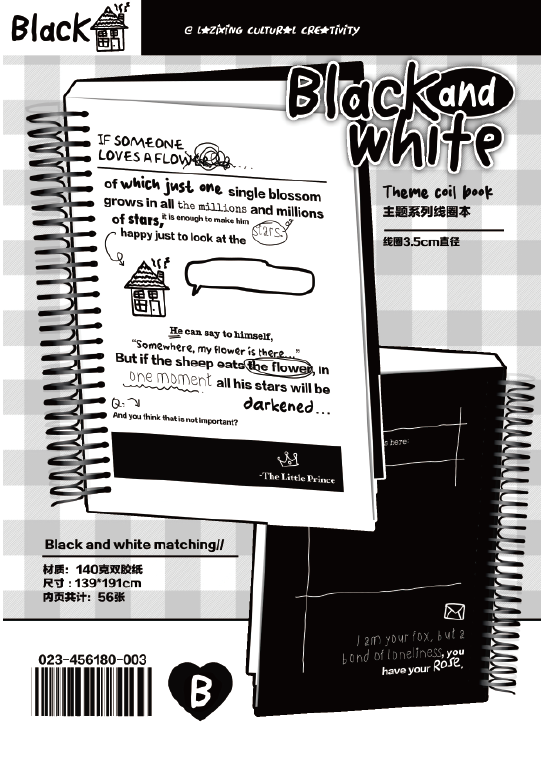 Black
@ LAZIXING CULTURAL CREATIVITY
Black and
white
Theme coil book
主题系列线圈本
线圈3.5cm直径
IF SOMEONE
LOVES A FLOW
of which just one single blossom
grows in all the millions and millions
of stars, it is enough to make him stars
happy just to look at the
He can say to himself,
"Somewhere, my flower is there..."
But if the sheep eats the flower, in
one moment all his stars will be
darkened...
Q:
And you think that is not important?
-The Little Prince
s here:
I am your fox, but a
bond of loneliness, you
have your Rose.
Black and white matching//
材质：140克双胶纸
尺寸：139*191cm
内页共计：56张
023-456180-003
B